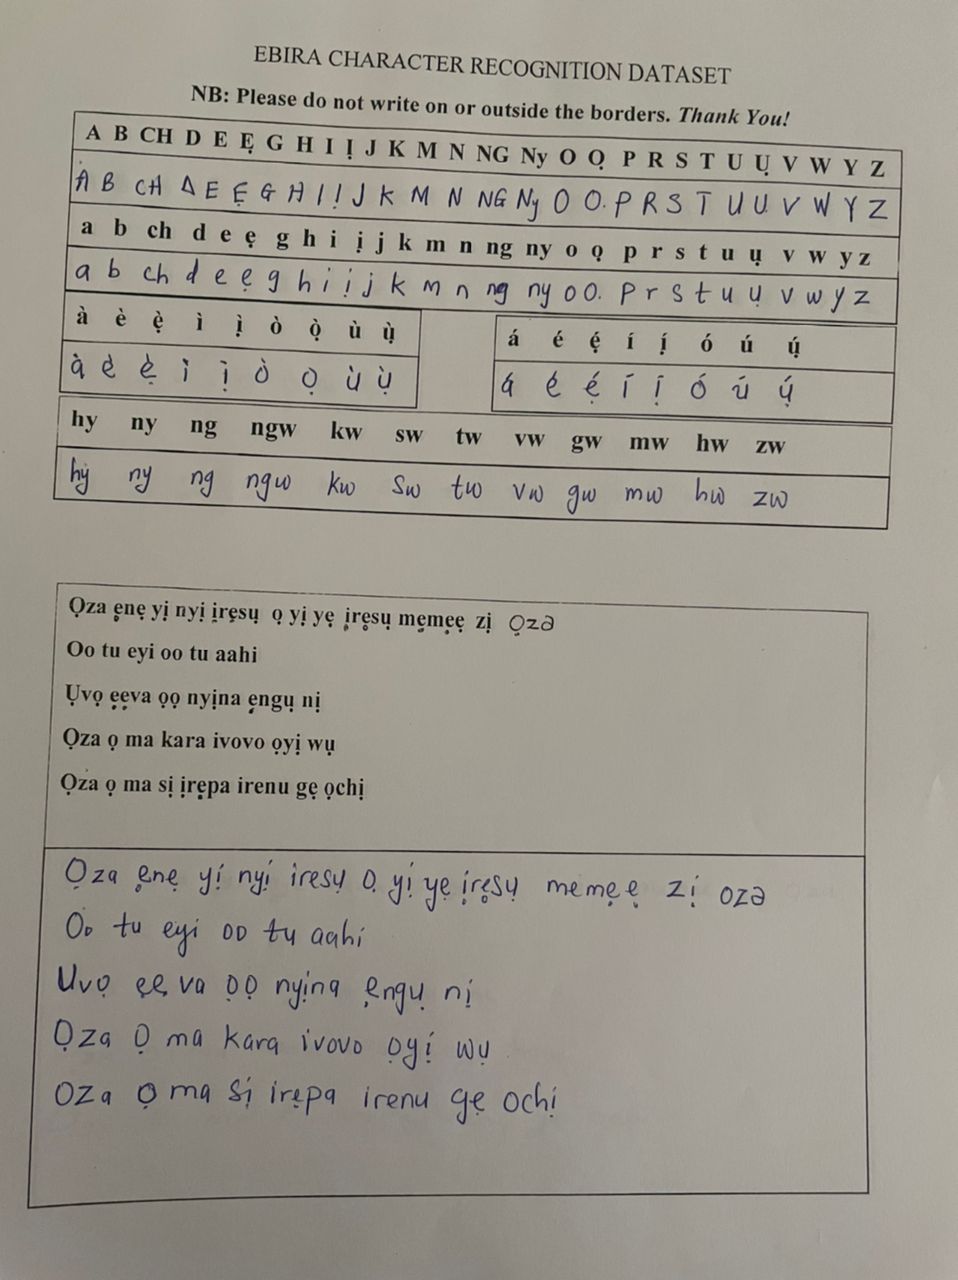 EBIRA CHARACTER RECOGNITION DATASET
NB: Please do not write on or outside the borders. Thank You!
A B CH D E Ẹ G H I Ị J K M N NG Ny O Ọ P R S T U Ụ V W Y Z
A B CH D E Ẹ G H I Ị J K M N NG Ny O O. P R S T U U. V W Y Z
a b ch d e ẹ g h i ị j k m n ng ny o ọ p r s t u ụ v w y z
a b ch d e ẹ g h i ị j k m n ng ny o o. p r s t u ụ v w y z
à è ẹ̀ ì ị̀ ò ọ̀ ù ụ̀
à è ẹ̀ ì ị̀ ò ọ ù ụ̀
á é ẹ́ í ị́ ó ú ụ́
á é ẹ́ í ị́ ó ú ụ́
hy ny ng ngw kw sw tw vw gw mw hw zw
hy ny ng ngw kw sw tw vw gw mw hw zw
Ọza ẹnẹ yị nyị ịrẹsụ ọ yị yẹ ịrẹsụ mẹmẹẹ zị Ọza
Oo tu eyi oo tu aahi
Ụvọ ẹẹva ọọ nyịna ẹngụ nị
Ọza ọ ma kara ivovo ọyị wụ
Ọza ọ ma sị ịrẹpa irenu gẹ ọchị
Ọza ẹnẹ yị nyị iresụ Ọ yị yẹ ịrẹsụ memẹẹ zị oza
Oo tu eyi oo tu aahi
Uvọ ẹẹ va ọọ nyịna ẹngụ nị
Ọza Ọ ma kara ivovo ọyị wụ
Oza ọ ma sị irẹpa irenu gẹ ochị